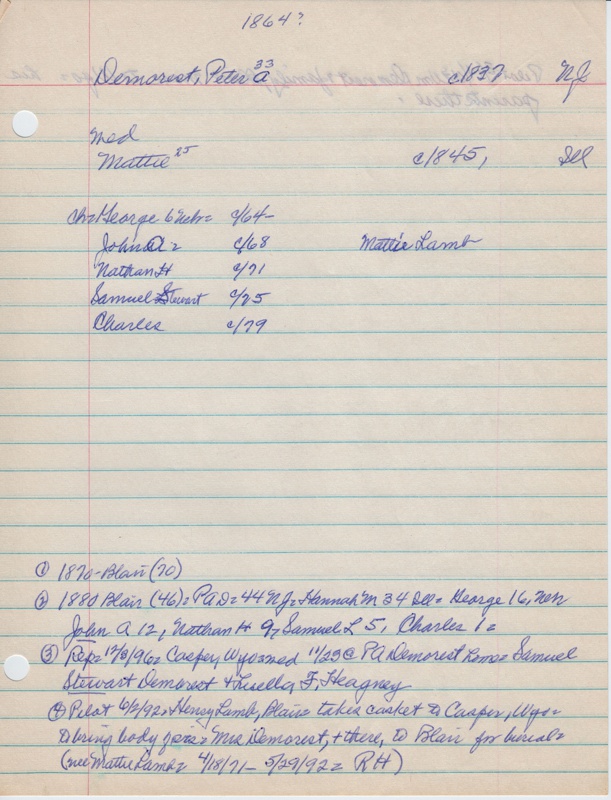 1864?
Demorest, Peter A 33 c/1837 NJ
med
Mattie 25 c/1845, Ill
ch= George 6 Neb= c/64-
John A = c/68 Mattie Lamb
Nathan H c/71
Samuel Stewart c/75
Charles c/79
① 1870-Blair (70)
② 1880 Blair (46)= PAD=44 NJ= Hannah M 34 Ill= George 16, Neb
John A 12, Nathan H 9, Samuel L 5, Charles 1=
③ Rep= 12/8/96= Casper, Wyo= med 11/25 @ PA Demorest home= Samuel
Stewart Demorest + Luella F. Heagney
④ Pilot 6/2/92= Henry Lamb, Blair= takes casket to Casper, Wyo=
to bring body of sis= Mrs Demorest, + there, to Blair for burial=
(nee Mattie Lamb= 4/18/71 - 5/29/92= RH)